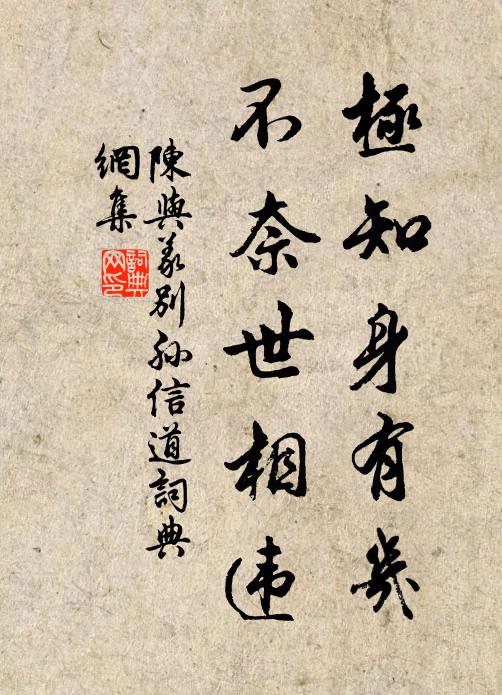 極知身有幾
不奈世相违
陳與義别孙信道詞典
網集
詞典
网印